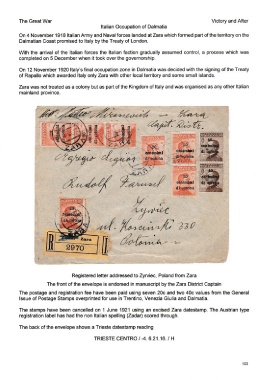 The Great War
Victory and After
Italian Occupation of Dalmatia
On 4 November 1918 Italian Army and Naval forces landed at Zara which formed part of the territory on the
Dalmatian Coast promised to Italy by the Treaty of London.
With the arrival of the Italian forces the Italian faction gradually assumed control, a process which was
completed on 5 December when it took over the governorship.
On 12 November 1920 Italy's final occupation zone in Dalmatia was decided with the signing of the Treaty
of Rapallo which awarded Italy only Zara with other local territory and some small islands.
Zara was not treated as a colony but as part of the Kingdom of Italy and was organised as any other Italian
mainland province.
Zara
Capt. Diste.
Egregio Signor
Rudolf
Zywiec
ul. Kosciuszki 330
Polonia
R
Zara
2970
Registered letter addressed to Zyrviec, Poland from Zara
The front of the envelope is endorsed in manuscript by the Zara District Captain
The postage and registration fee have been paid using seven 20c and two 40c values from the General
Issue of Postage Stamps overprinted for use in Trentino, Venezia Giulia and Dalmatia.
The stamps have been cancelled on 1 June 1921 using an excised Zara datestamp. The Austrian type
registration label has had the non Italian spelling (Zadar) scored through.
The back of the envelope shows a Trieste datestamp reading
TRIESTE CENTRO / -4. 6 21.16. / H